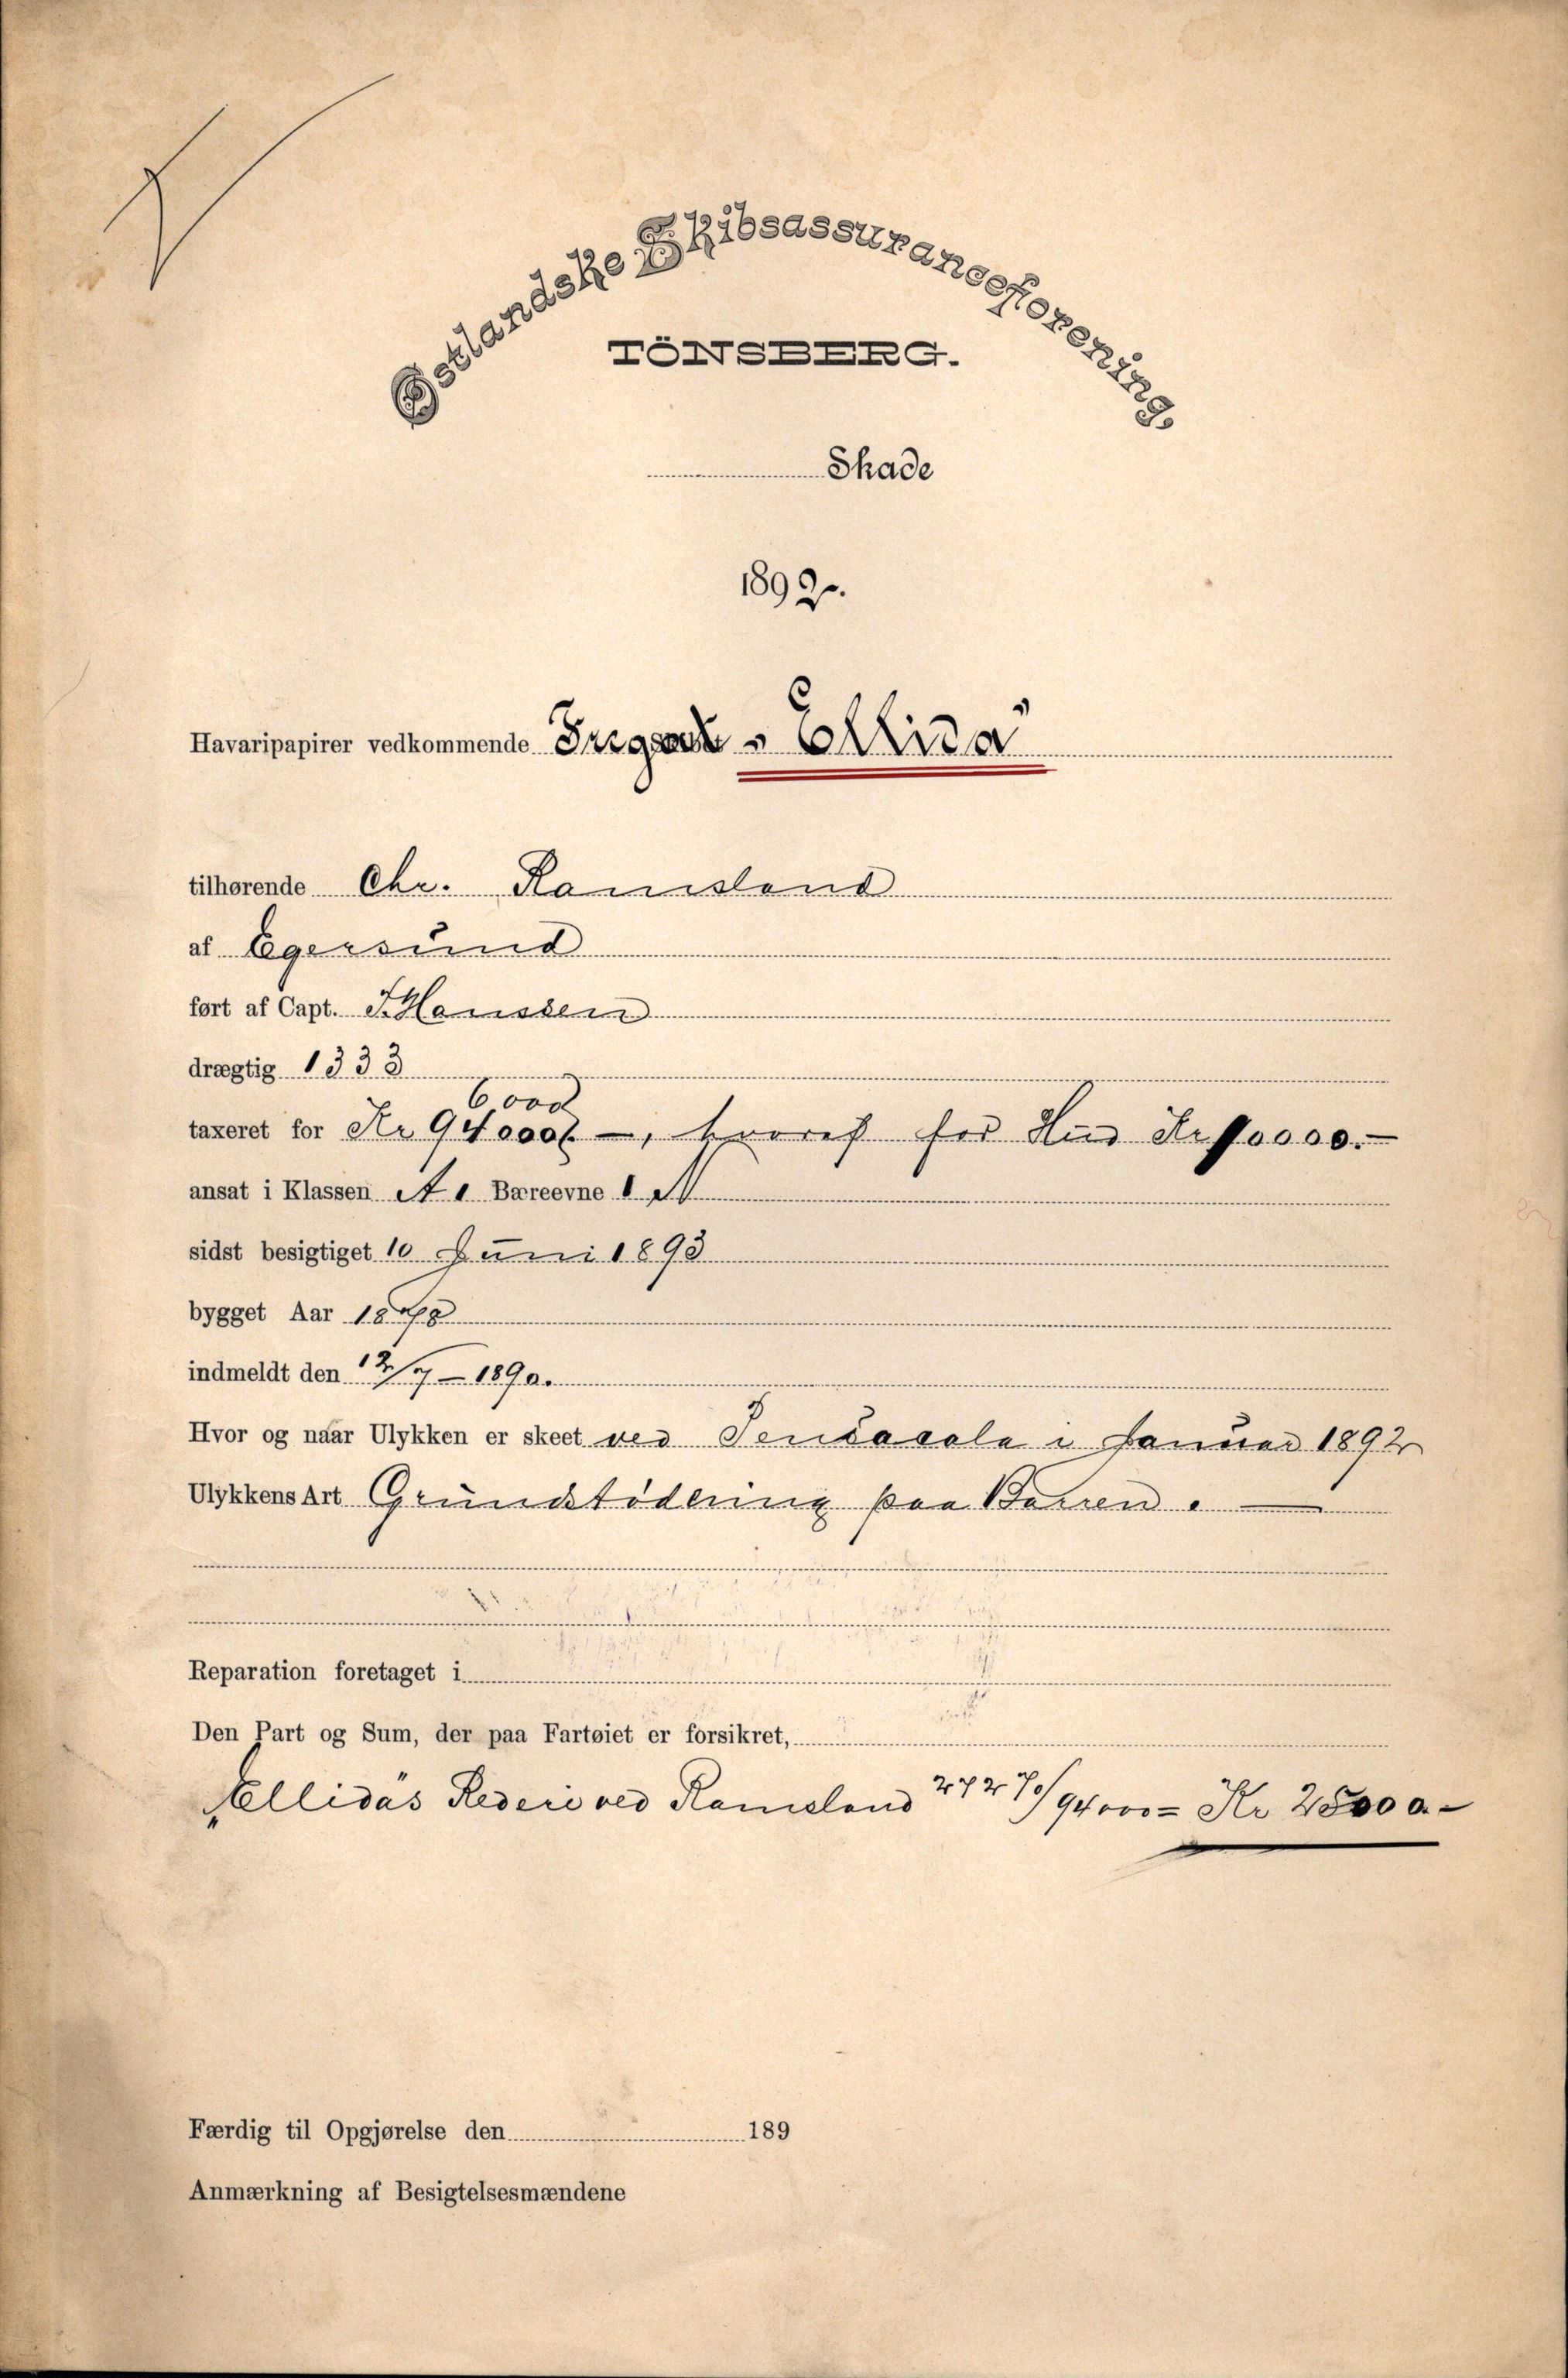 Østlandske Skibsassuranceforening.
TÖNSBERG.
Skade
1892.
Havaripapirer vedkommende Fregat „Ellida"
tilhørende Chr. Ramsland
af Egersund
ført af Capt. J. Hanssen
drægtig 1333
6000
taxeret for Kr 94000 —, hvoraf for Hud Kr 90000.—
ansat i Klassen A 1 Bæreevne 1 N
sidst besigtiget 10 Juni 1893
bygget Aar 1878
indmeldt den 12/7 — 1890.
Hvor og naar Ulykken er skeet ved Pensacola i Januar 1892
Ulykkens Art Grundstødning paa Barren. —
Reparation foretaget i
Den Part og Sum, der paa Fartøiet er forsikret,
„Ellidas" Rederi ved Ramsland /94000 = Kr 25000.-
Færdig til Opgjørelse den 189
Anmærkning af Besigtelsesmændene